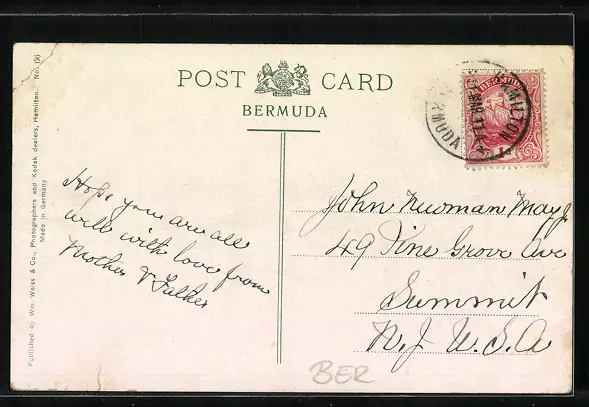 POST CARD
BERMUDA
HAMILTON
BERMUDA
Hope you are all
well with love from
Mother & Father
John Newman May Jr
49 Pine Grove Ave
Summit
N.J. U.S.A
BER
Published by Wm. Weiss & Co., Photographers and Kodak dealers, Hamilton. No. 66
Made in Germany